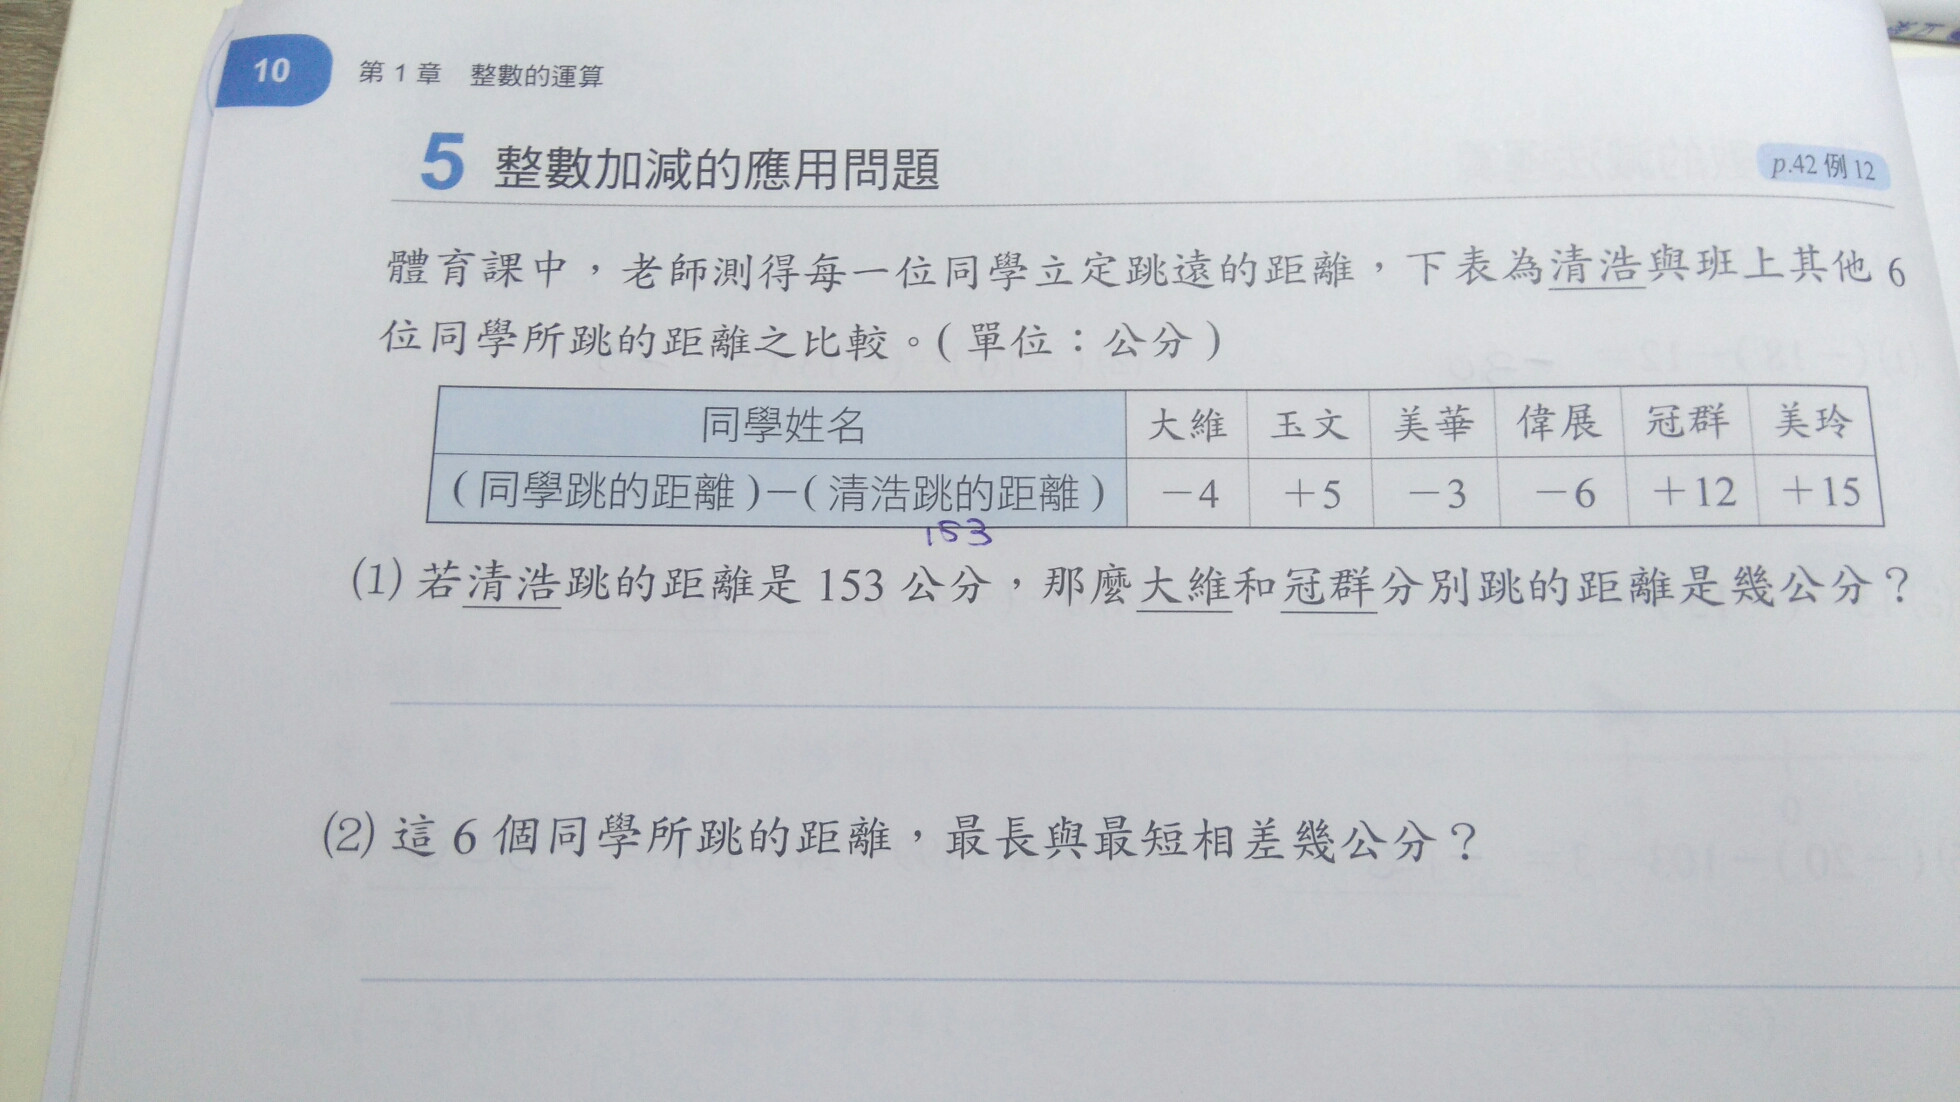 10 第1章 整數的運算
5 整數加減的應用問題 p.42 例12
體育課中，老師測得每一位同學立定跳遠的距離，下表為清浩與班上其他6
位同學所跳的距離之比較。(單位：公分)
同學姓名 大維 玉文 美華 偉展 冠群 美玲
(同學跳的距離)－(清浩跳的距離) －4 ＋5 －3 －6 ＋12 ＋15
153
(1) 若清浩跳的距離是153公分，那麼大維和冠群分別跳的距離是幾公分？
(2) 這6個同學所跳的距離，最長與最短相差幾公分？